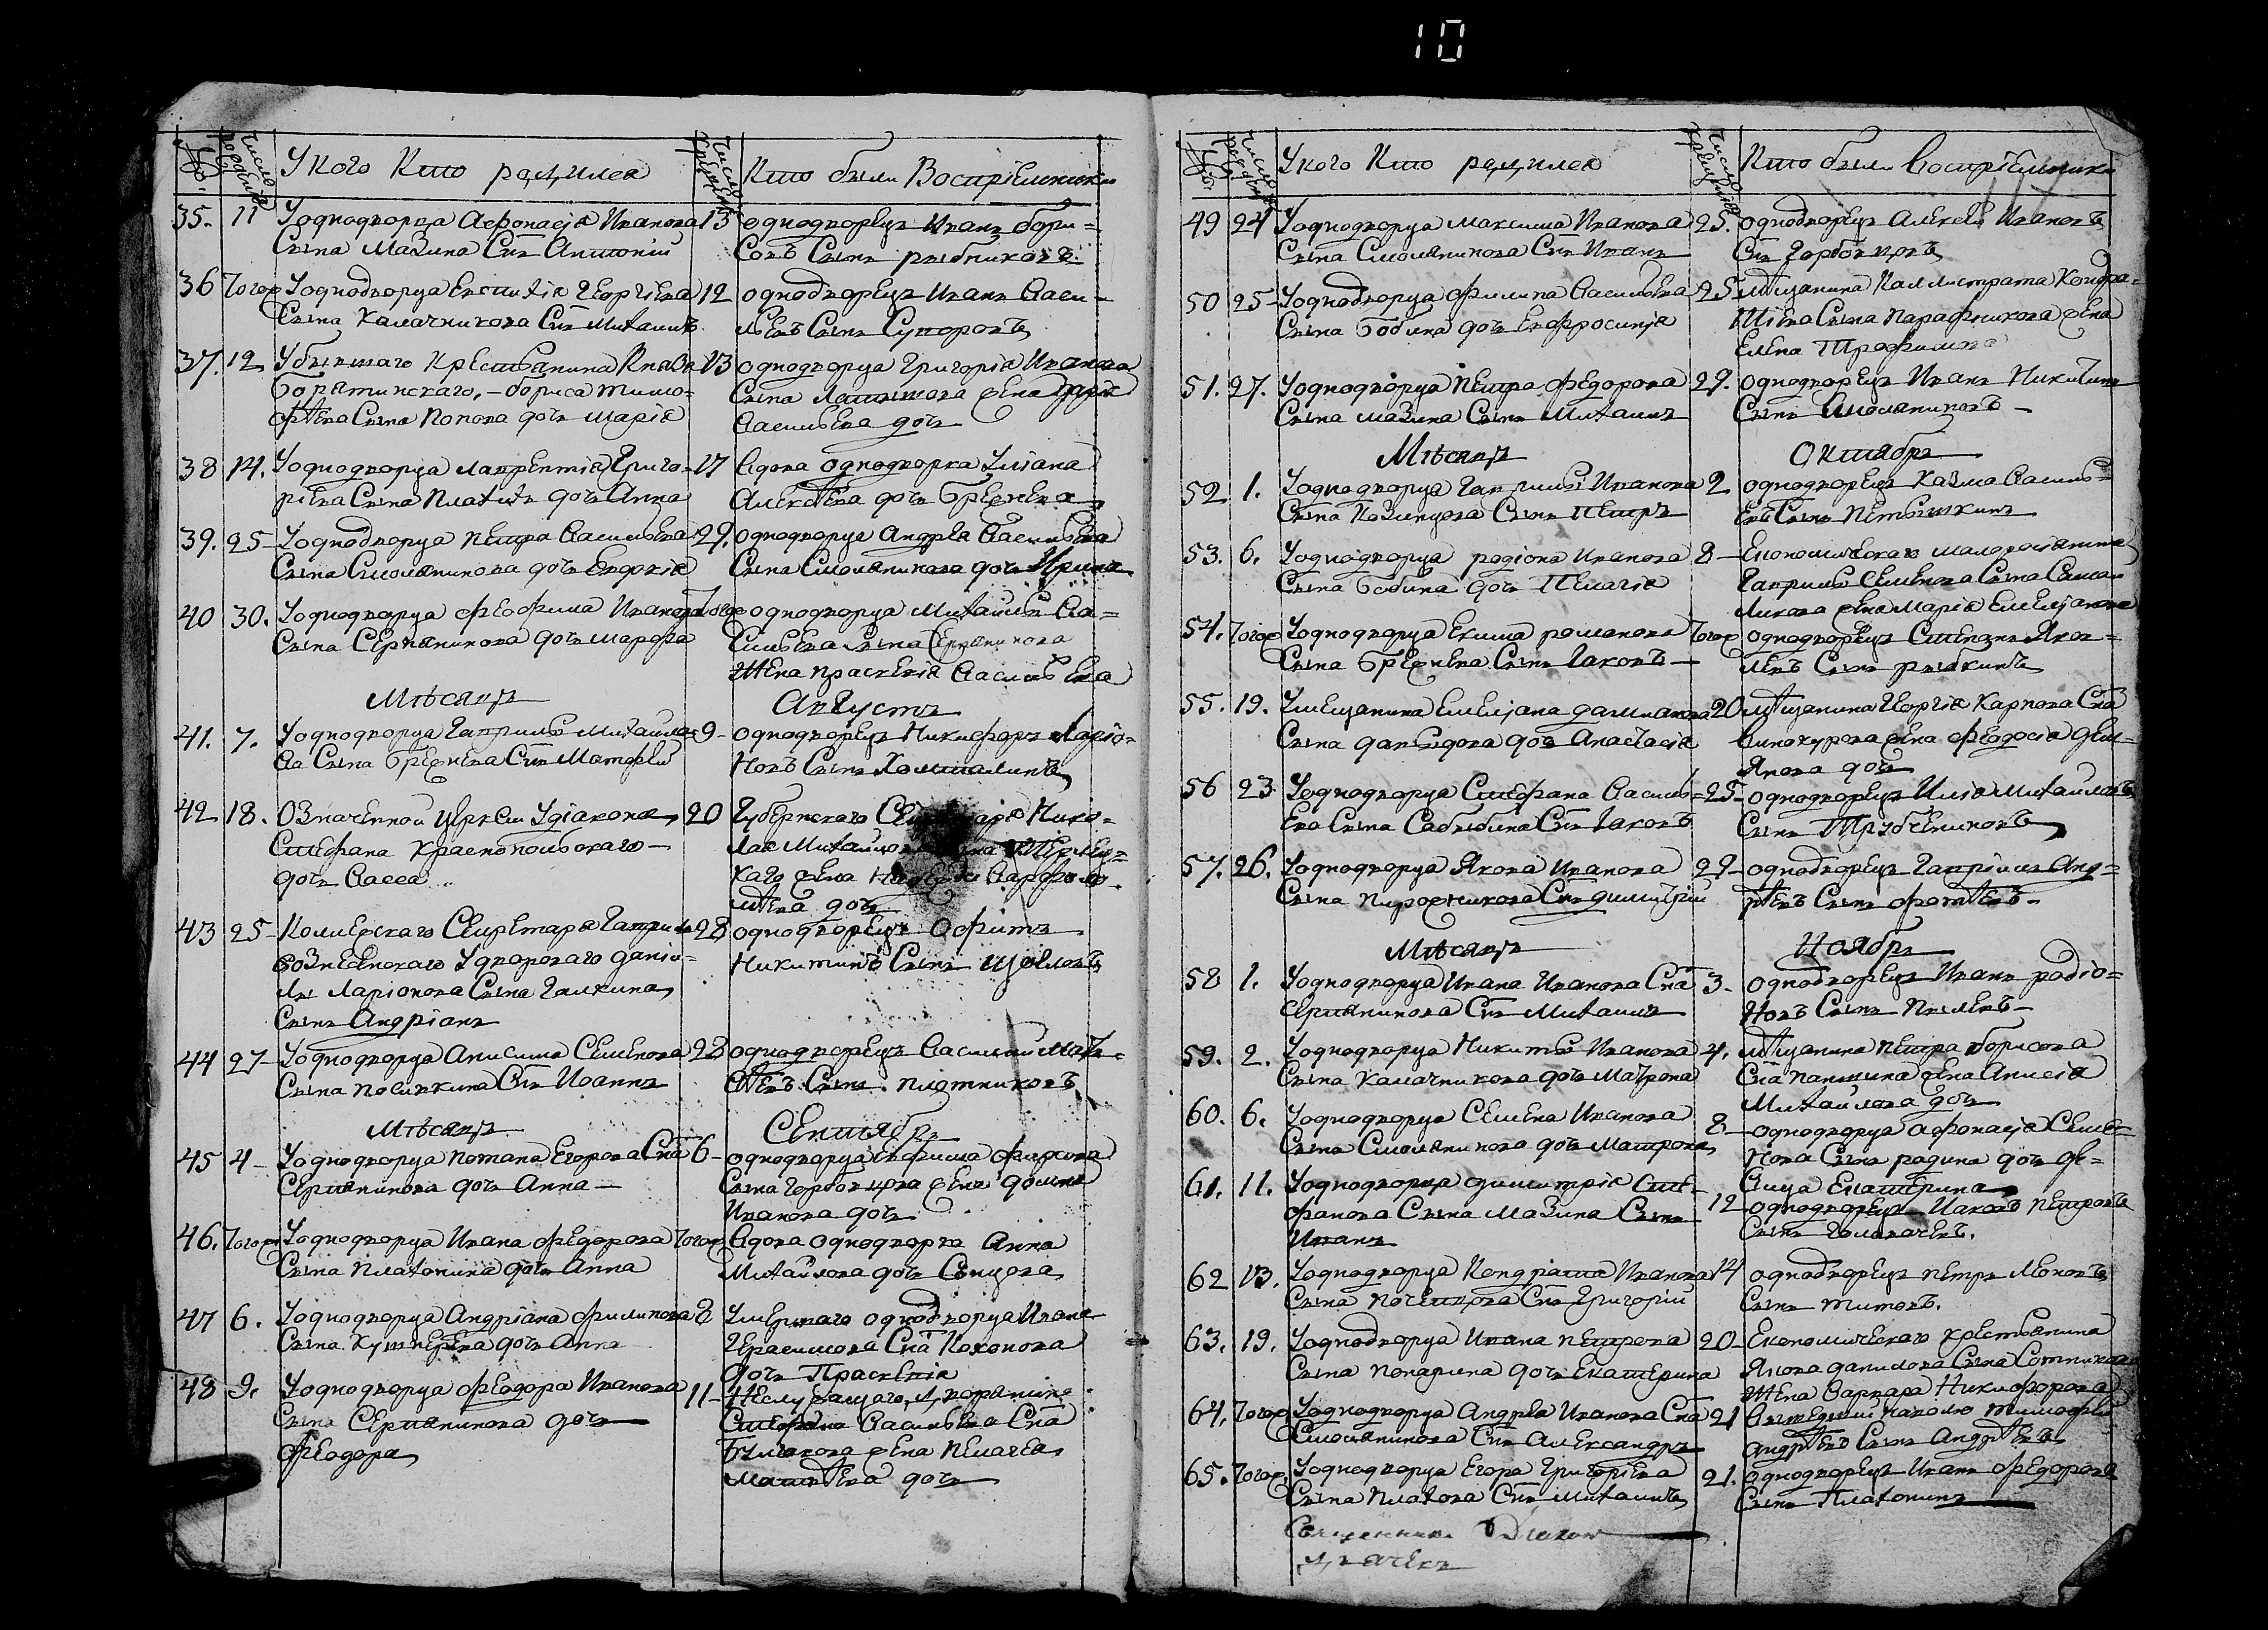 10
№.
Число рождения
У кого кто родился
Число крещения
Кто были восприемники
35. 11 У однодворца Афонасія Иванова
сына Мазина сынъ Антоній
13 однодворецъ Иванъ Бори=
совъ сынъ Рыбниковъ
36 Тогож У однодворца Георгіева
сына Калачникова сынъ Михаилъ
12 однодворецъ Иванъ Васи=
льевъ сынъ Супоровъ
37. 12 У бывшаго крестьянина Князя
Борятинскаго, Бориса Тимо=
фѣева сына Попова дочь Марія
13 однодворца Григорія Иванова
сына жена Дарія
Васильева дочь
38 14. У однодворца Лаврентія Григо=
ріева сына дочь Анна
17 вдова однодворка Уліана
Алексѣева дочь Брежнева
39. 25 У однодворца Петра Васильева
сына Смольянинова дочь Евдокія
29. однодворца Андрѣя Васильева
сына Смольянинова дочь Ирина
40 30. У однодворца Феофила Иванова
сына Сериянинова дочь Марфа
Тогож однодворца Михаила Ва=
сильева сына Сериянинова
жена Праскевія Васильева
Мѣсяцъ Августъ
41. 7. У однодворца Гаврилы Михайло=
ва сына Брежнева сынъ Матфѣй
9 однодворецъ Никифоръ Ларіо=
новъ сынъ
42 18. Означенной церкви у діакона
Стефана Краснопольскаго
дочь Васса
20 Губернскаго Секретаря Нико=
лая Михайлова
каго жена Варфоло=
мѣева дочь
43 25 Колежскаго Секретаря Гаврилы
Вознесенскаго у двороваго Дани=
лы Ларіонова сына Галкина
сынъ Андріанъ
28 однодворецъ Офимъ
Никитинъ сынъ Щегловъ
44 27 У однодворца Анисима Семенова
сына сынъ Иоаннъ
28 однодворецъ Василій Мат=
фѣевъ сынъ Плотниковъ
Мѣсяцъ Сентябрь
45 4 У однодворца Потапа Егорова сна
Сериянинова дочь Анна
6 однодворца Ефима Фирсова
сына Горбовцова жена Домна
Иванова дочь
46. Тогож У однодворца Ивана Федорова
сына Платонина дочь Анна
Тогож вдова однодворка Анна
Михайлова дочь
47 6. У однодворца Андріана Филипова
сына Кушнерева дочь Анна
8 Умершаго однодворца Ивана
Герасимова сна Коконова
дочь Праскевія
48 9. У однодворца Феодора Иванова
сына Сериянинова дочь
Феодора
11 дворянина
Стефана Васильева сна
Булгакова жена Пелагея
Матвѣева дочь
№.
Число рожденія
У кого кто родился
Число крещенія
Кто были воспріемники
49 24 У однодворца Максима Иванова
сына Смольянинова сынъ Иванъ
25. однодворецъ Алексѣй Ивановъ
сынъ Горбовцовъ
50 25 У однодворца Филипа Васильева
сына Бобина дочь Евфросинія
25 мѣщанина Каллистрата Кондра=
тіева сына Парафникова жена
Елена Трофимова
51. 27. У однодворца Петра Федорова
сына Мазина сынъ Михаилъ
29. однодворецъ Иванъ Никитинъ
сынъ Смольяниновъ
Мѣсяцъ Октябрь
52 1. У однодворца Гаврилы Иванова
сына Козинцова сынъ Петръ
2 однодворецъ Казма Василь=
евъ сынъ
53. 6. У однодворца Родіона Иванова
сына Бобина дочь Пелагія
8 Економическаго малоросіянина
Гаврилы Семенова сына
жена Марія Емельянова
54. Тогож У однодворца Екима Романова
сына Брежнева сынъ Іаковъ
Тогож однодворецъ Степанъ Яков=
левъ сынъ Рыбкинъ
55. 19. У мещанина Емельяна Дамианова
сына Давыдова дочь Анастасія
20 мѣщанина Георгія Карпова сна
Винокурова жена Феодосія Дем=
янова дочь
56 23 У однодворца Стефана Василь=
ева сына Сабынина сынъ Іаковъ
25 однодворецъ Илія Михайловъ
сынъ Трубчениновъ
57. 26. У однодворца Якова Иванова
сына Пирожникова сынъ Димитрій
27 однодворецъ Гавріилъ Анд=
рѣевъ сынъ Фатѣевъ
Мѣсяцъ Ноябрь
58 1. У однодворца Ивана Иванова сна
Сериянинова сынъ Михаилъ
3 однодворецъ Иванъ Родіо=
новъ сынъ
59. 2. У однодворца Никиты Иванова
сына Калачникова дочь Матрона
4. мѣщанина Петра Борисова
сна Паншина жена Анисія
Михайлова дочь
60. 6. У однодворца Семена Иванова
сына Смольянинова дочь Матрона
8 однодворца Афонасія Семе=
нова сына Родина дочь де=
вица Екатерина
61. 11. У однодворца Димитрія Сте=
фанова сына Мазина сынъ
Иванъ
12 однодворецъ Иаковъ Петровъ
сынъ Головачевъ.
62 13. У однодворца Кондратія Иванова
сына сынъ Григорій
14 однодворецъ Петръ Леоновъ
сынъ Титовъ.
63. 19. У однодворца Ивана Петрова
сына Понарина дочь Екатерина
20 Економическаго крестьянина
Якова Данилова сына Сотникова
жена Варвара Никифорова
64. Тогож У однодворца Андрѣя Иванова сна
Смольянинова сынъ Александръ
21 Тимофѣй
Андрѣевъ сынъ Андрѣевъ
65. Тогож У однодворца Егора Григоріева
сына Платова сынъ Михаилъ
21. однодворецъ Иванъ Федоровъ
сынъ Платонинъ
Священникъ